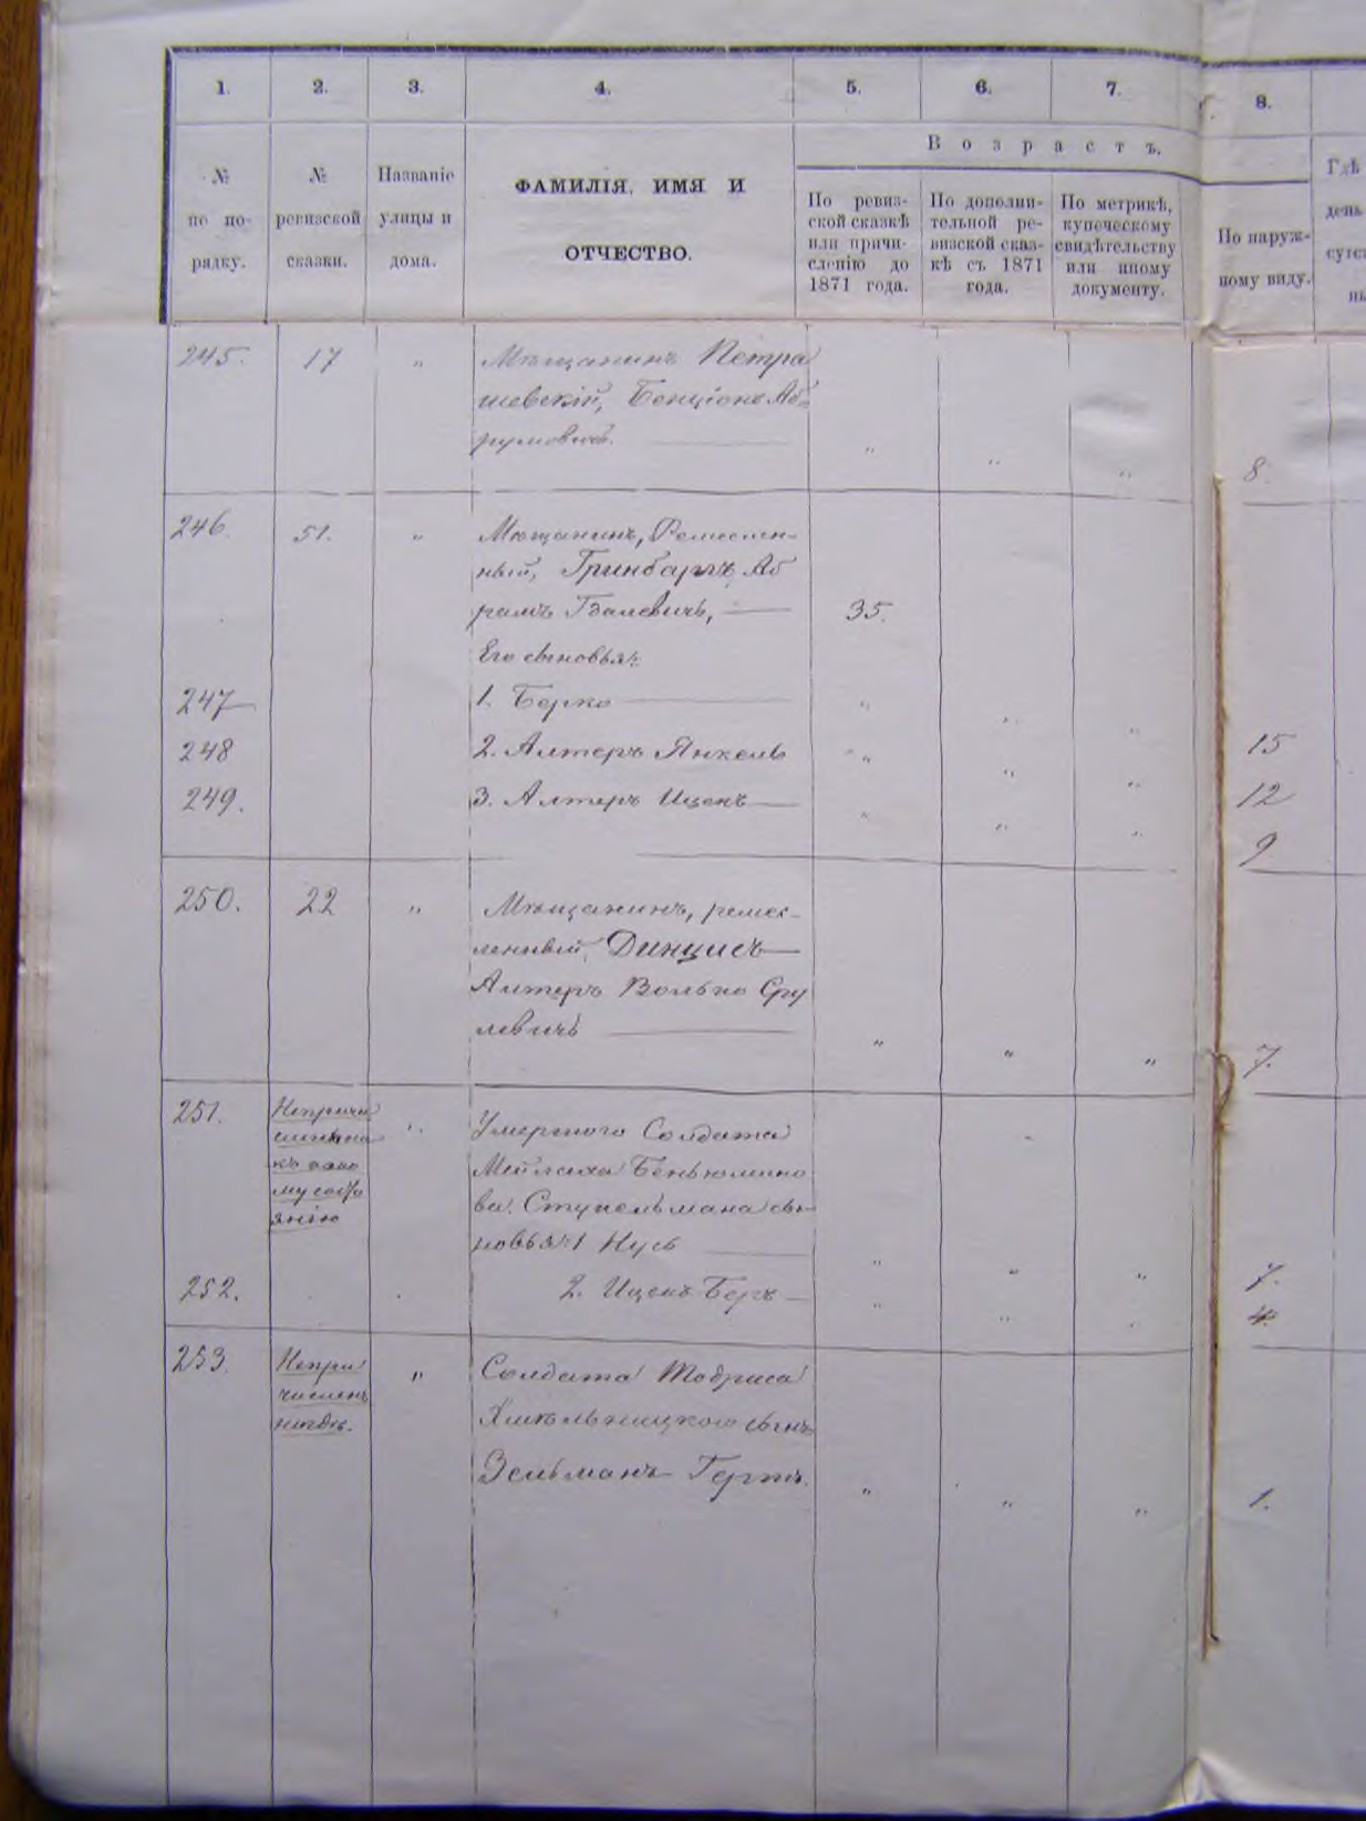 1. 2. 3. 4. 5. 6. 7. 8.
Возрастъ.
№ по по-рядку.
№ ревизской сказки.
Названіе улицы и дома.
ФАМИЛІЯ, ИМЯ И ОТЧЕСТВО.
По ревиз-ской сказкѣ или причи-сленію до 1871 года.
По дополни-тельной ре-визской сказ-кѣ съ 1871 года.
По метрикѣ, купеческому свидѣтельству или иному документу.
По наруж-ному виду.
Гдѣ
день
245. 17 " Мѣщанинъ Петра
шевскій, Бенціонъ Аб-
румовичъ. " " " 8.
246. 51. " Мѣщанинъ, Ремеслен-
ный, Гринбармъ Аб
рамъ Гдалевичъ, 35.
Его сыновья:
247 1. Берко " " " 15
248 2. Алтеръ Янкель " " " 12
249. 3. Алтеръ Ицекъ " " " 9
250. 22 " Мѣщанинъ, ремес-
ленный, Динцисъ
Алтеръ Волько Сру
левичъ " " " 7.
251. Непричи " Умершаго Солдата
сленъ на
къ одно
му состо
янію
Мейлаха Беньюмино
ва Ступельмана сы-
новья: 1 Нусь " " " 7.
252. 2. Ицекъ Беръ " " " 4.
253. Непри " Солдата Тодриса
численъ
нигдѣ.
Хмѣльницкого сынъ
Зельманъ Герть. " " " 1.